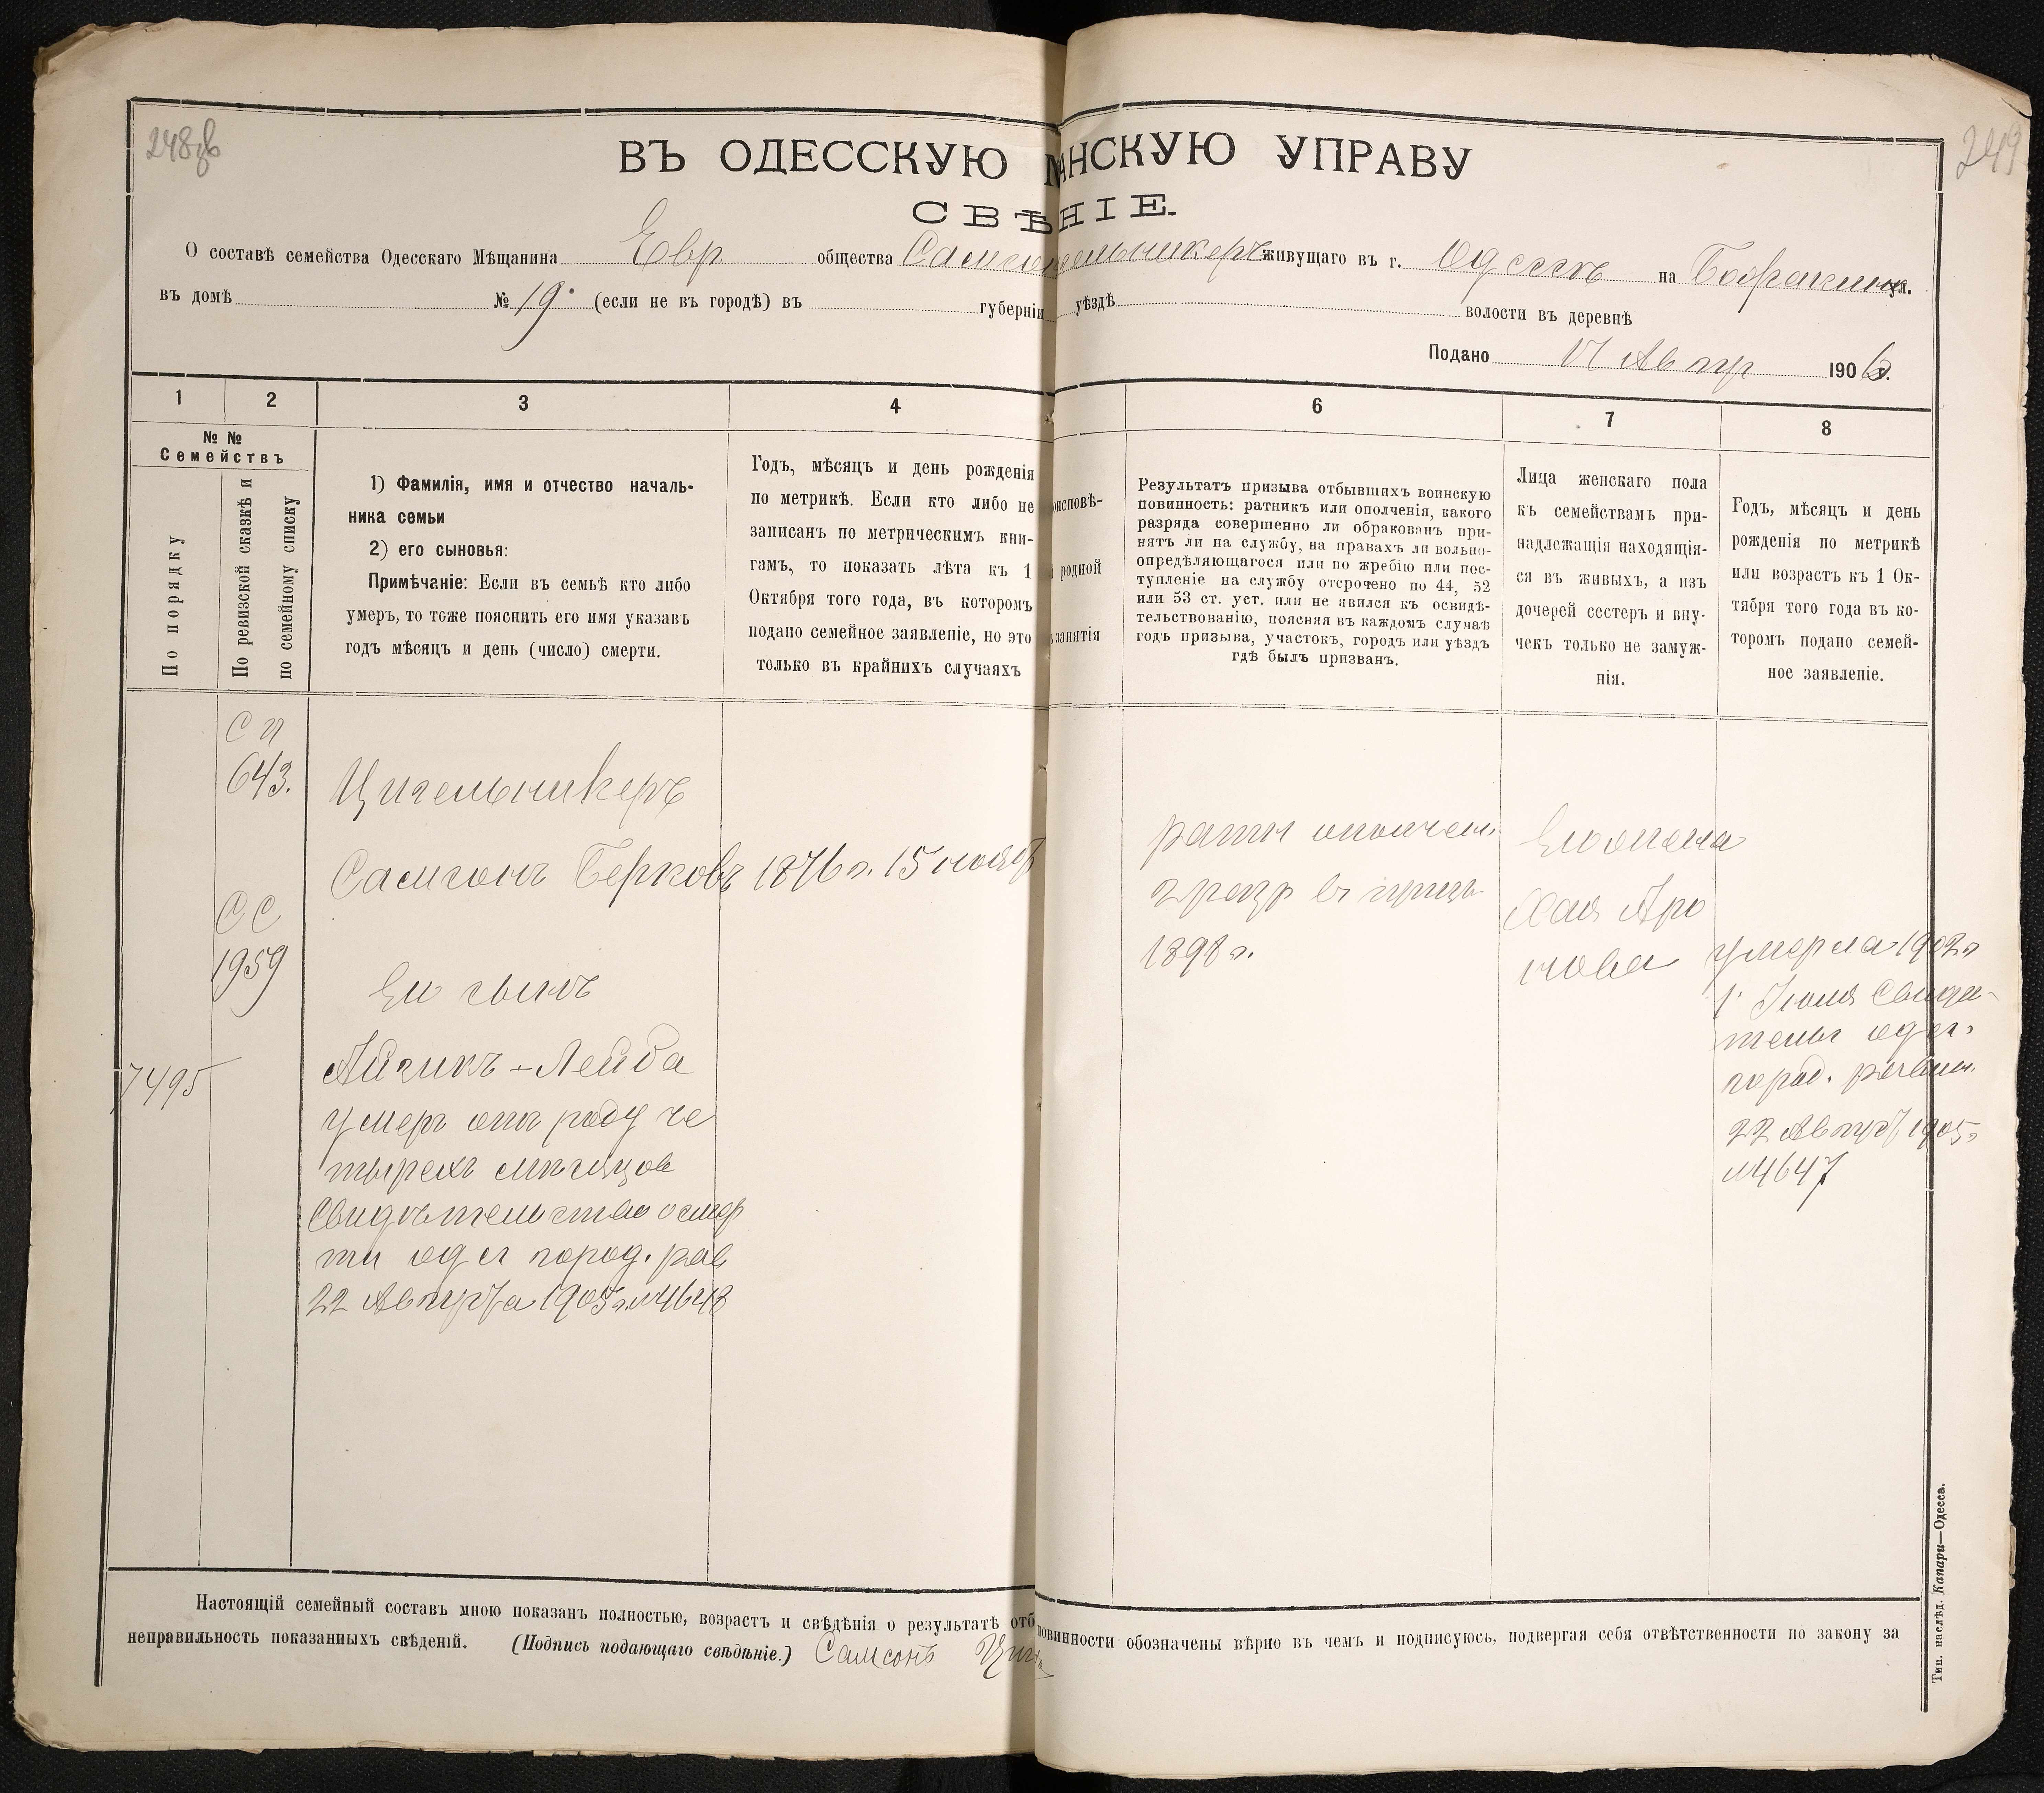 248об
249
ВЪ ОДЕССКУЮ М АНСКУЮ УПРАВУ
СВѢ НІЕ.
О составѣ семейства Одесскаго Мѣщанина Евр общества Самсон ельникеръ живущаго въ г. Одессѣ на ул.
въ домѣ № 19. (если не въ городѣ) въ губерніи уѣздѣ волости въ деревнѣ
Подано 17 Авгус 1906 г.
1 2 3 4 6 7 8
№ №
Семействъ
По порядку
По ревизской сказкѣ и
по семейному списку
1) Фамилія, имя и отчество началь-
ника семьи
2) его сыновья:
Примѣчаніе: Если въ семьѣ кто либо
умеръ, то тоже пояснить его имя указавъ
годъ мѣсяцъ и день (число) смерти.
Годъ, мѣсяцъ и день рожденія
по метрикѣ. Если кто либо не
записанъ по метрическимъ кни-
гамъ, то показать лѣта къ 1
Октября того года, въ которомъ
подано семейное заявленіе, но это
только въ крайнихъ случаяхъ
оисповѣ-
родной
занятія
Результатъ призыва отбывшихъ воинскую
повинность: ратникъ или ополченія, какого
разряда совершенно ли обракованъ при-
нятъ ли на службу, на правахъ ли вольно-
опредѣляющагося или по жребію или пос-
тупленіе на службу отсрочено по 44, 52
или 53 ст. уст. или не явился къ освидѣ-
тельствованію, поясняя въ каждомъ случаѣ
годъ призыва, участокъ, городъ или уѣздъ
гдѣ былъ призванъ.
Лица женскаго пола
къ семействамъ при-
надлежащія находящія-
ся въ живыхъ, а изъ
дочерей сестеръ и вну-
чекъ только не замуж-
нія.
Годъ, мѣсяцъ и день
рожденія по метрикѣ
или возрастъ къ 1 Ок-
тября того года въ ко-
торомъ подано семей-
ное заявленіе.
643.
СС
1959
7495
Цигельникеръ
Самсонъ Берковъ 1876 г. 15 ноябр
Его сынъ
Айзикъ-Лейба
умеръ отъ роду че
тырехъ мѣсяцов
Свидѣтельство о смер
ти одес город. рав
22 Августа 1905 г. №4648
ратн ополчен.
2 разр въ призы
1898 г.
Его жена
Хая Аро
нова
умерла 1902 г
1 Іюля Свидѣ-
тельс одес.
город. раввин.
22 Август 1905 г
№4647
Настоящій семейный составъ мною показанъ полностью, возрастъ и свѣдѣнія о результатѣ отб повинности обозначены вѣрно въ чемъ и подписуюсь, подвергая себя отвѣтственности по закону за
неправильность показанныхъ свѣденій. (Подпись подающаго свѣдѣніе.) Самсонъ Циг
Тип. наслѣд. Капари—Одесса.